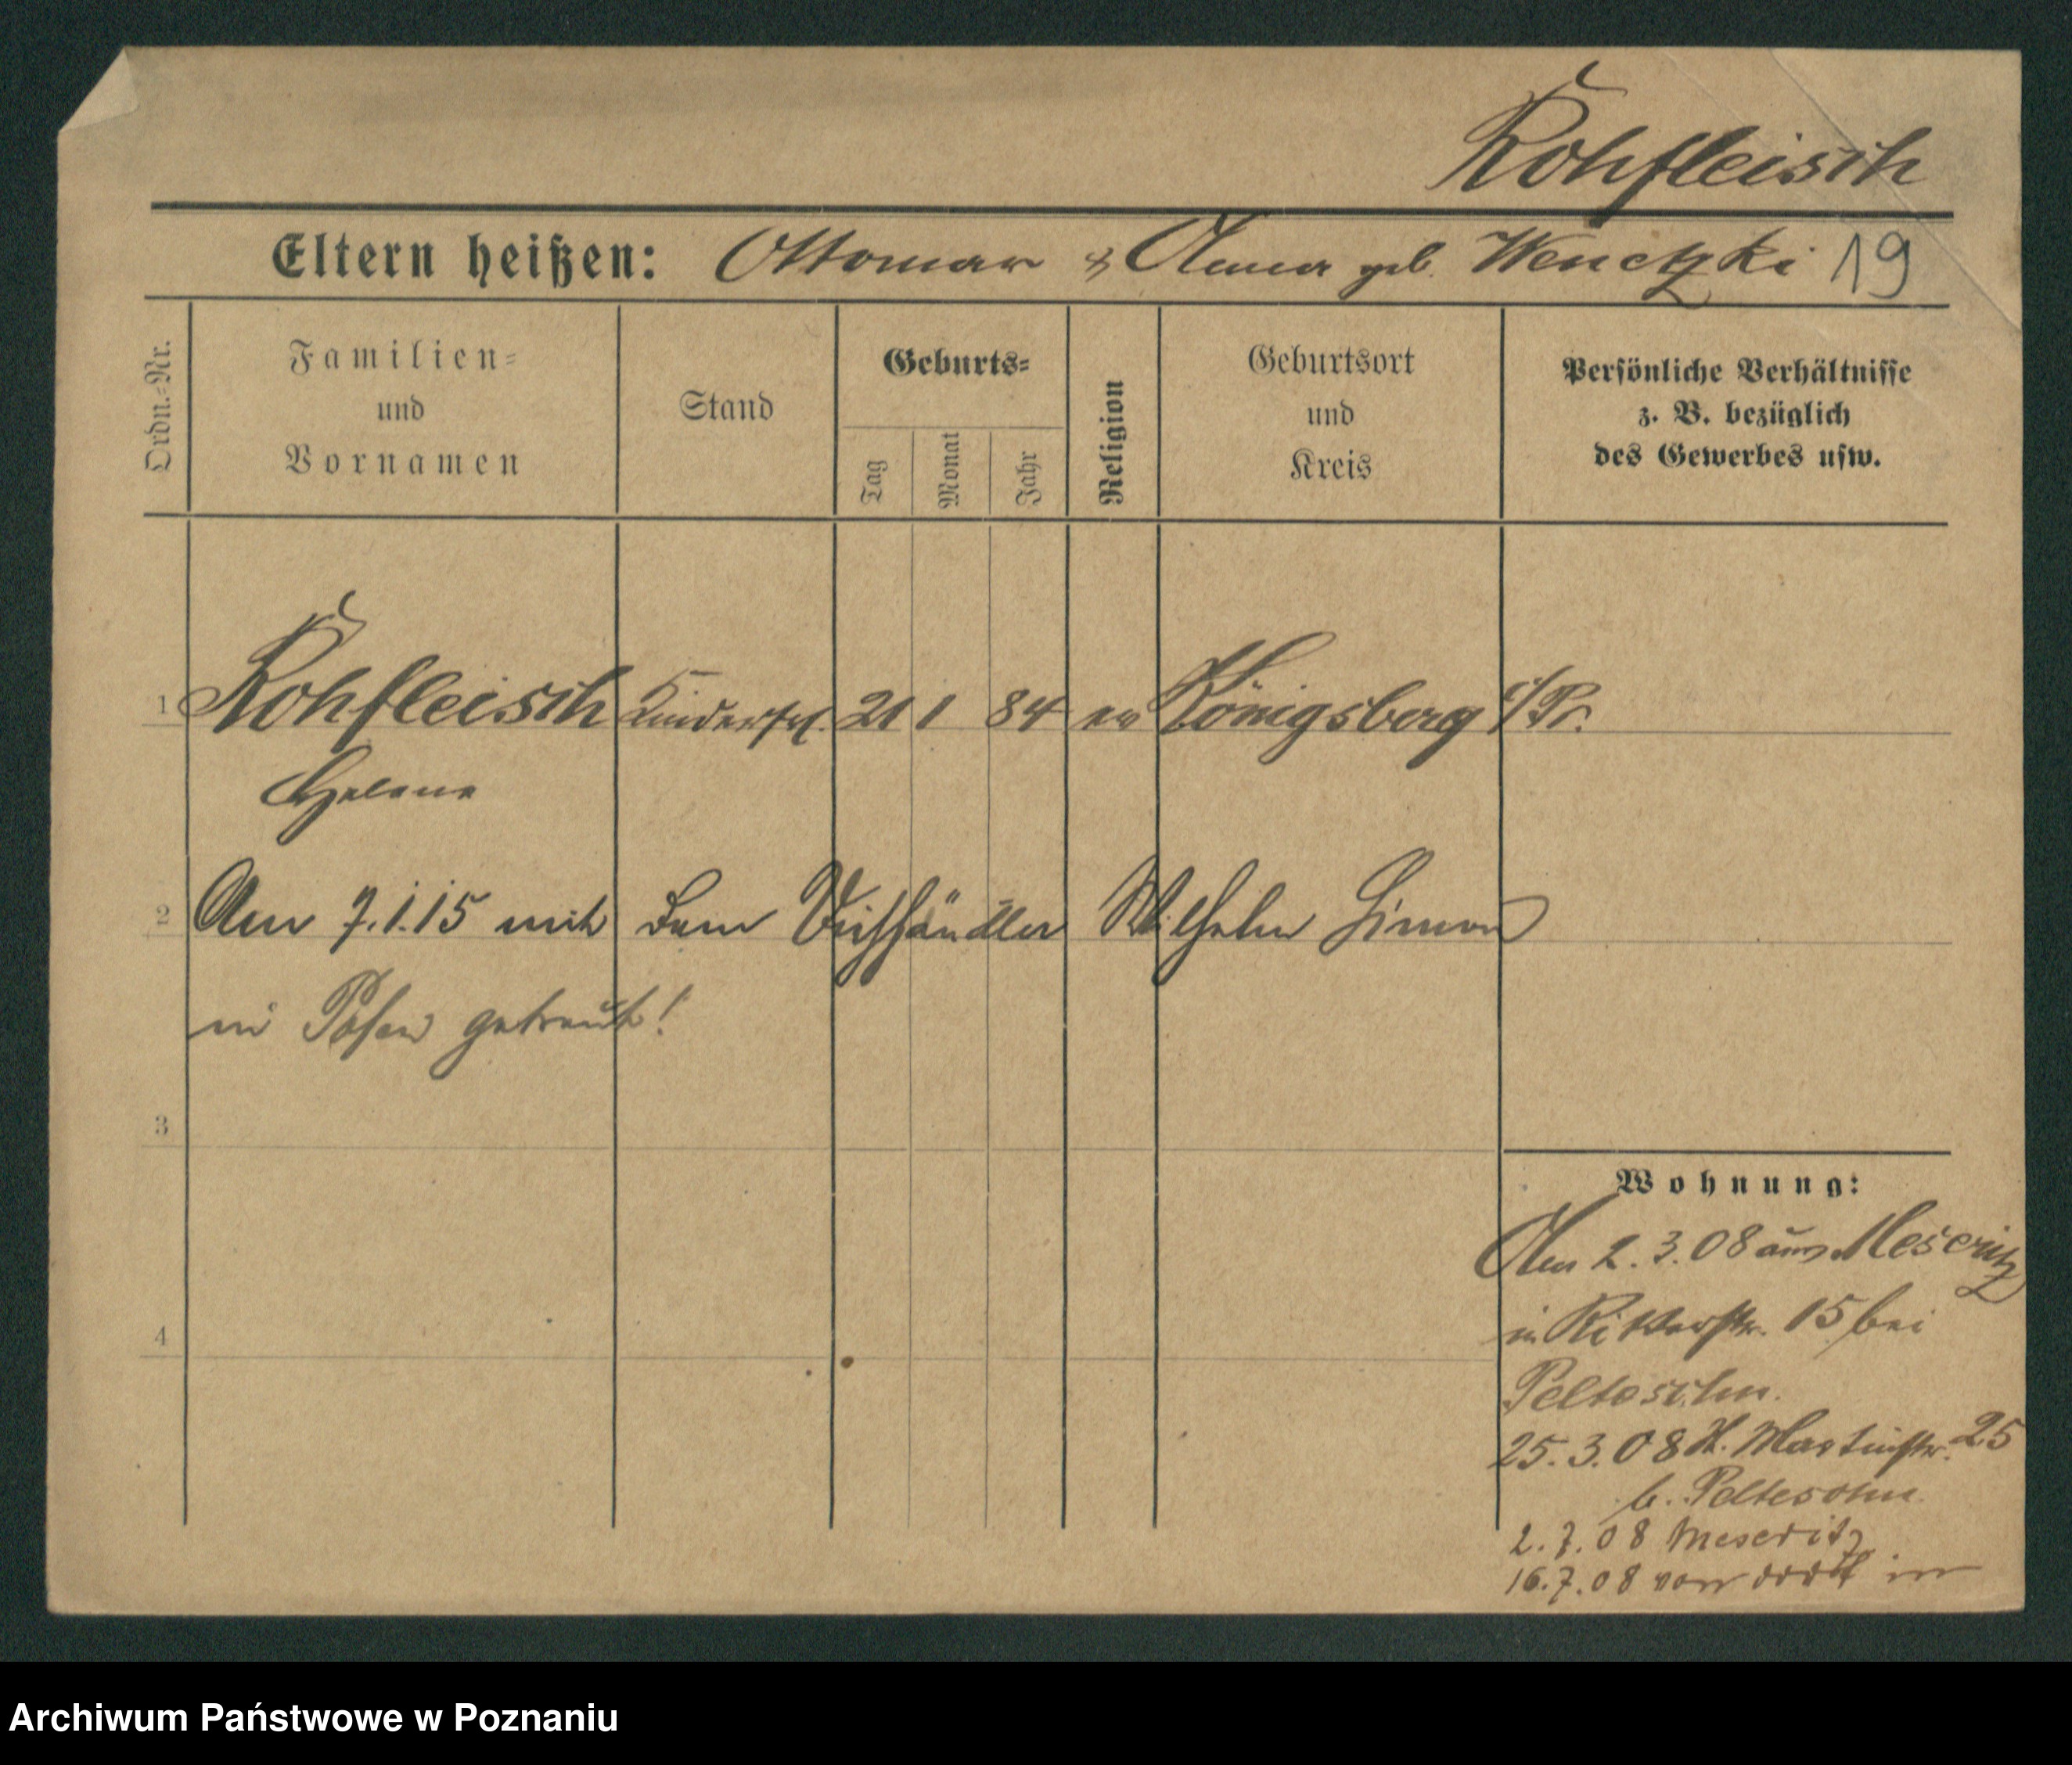 Rohfleisch
Eltern heißen: Ottomar & Anna geb. Wenctzki 19
Ordn.=Nr.
Familien=
und
Vornamen
Stand
Geburts=
Tag
Monat
Jahr
Religion
Geburtsort
und
Kreis
Persönliche Verhältnisse
z. B. bezüglich
des Gewerbes usw.
1 Rohfleisch Kinderfrl. 21 1 84 ev Königsberg i/Pr.
Helene
2 Am 7.1.15 mit dem Viehhändler Wilhelm Simon
in Posen getraut!
3
4
Wohnung:
Am 2.3.08 aus Meseritz
in Ritterstr. 15 bei
Peltesohn.
25.3.08 St. Martinstr. 25
b. Peltesohn
2.7.08 Meseritz
16.7.08 von dort in
Archiwum Państwowe w Poznaniu